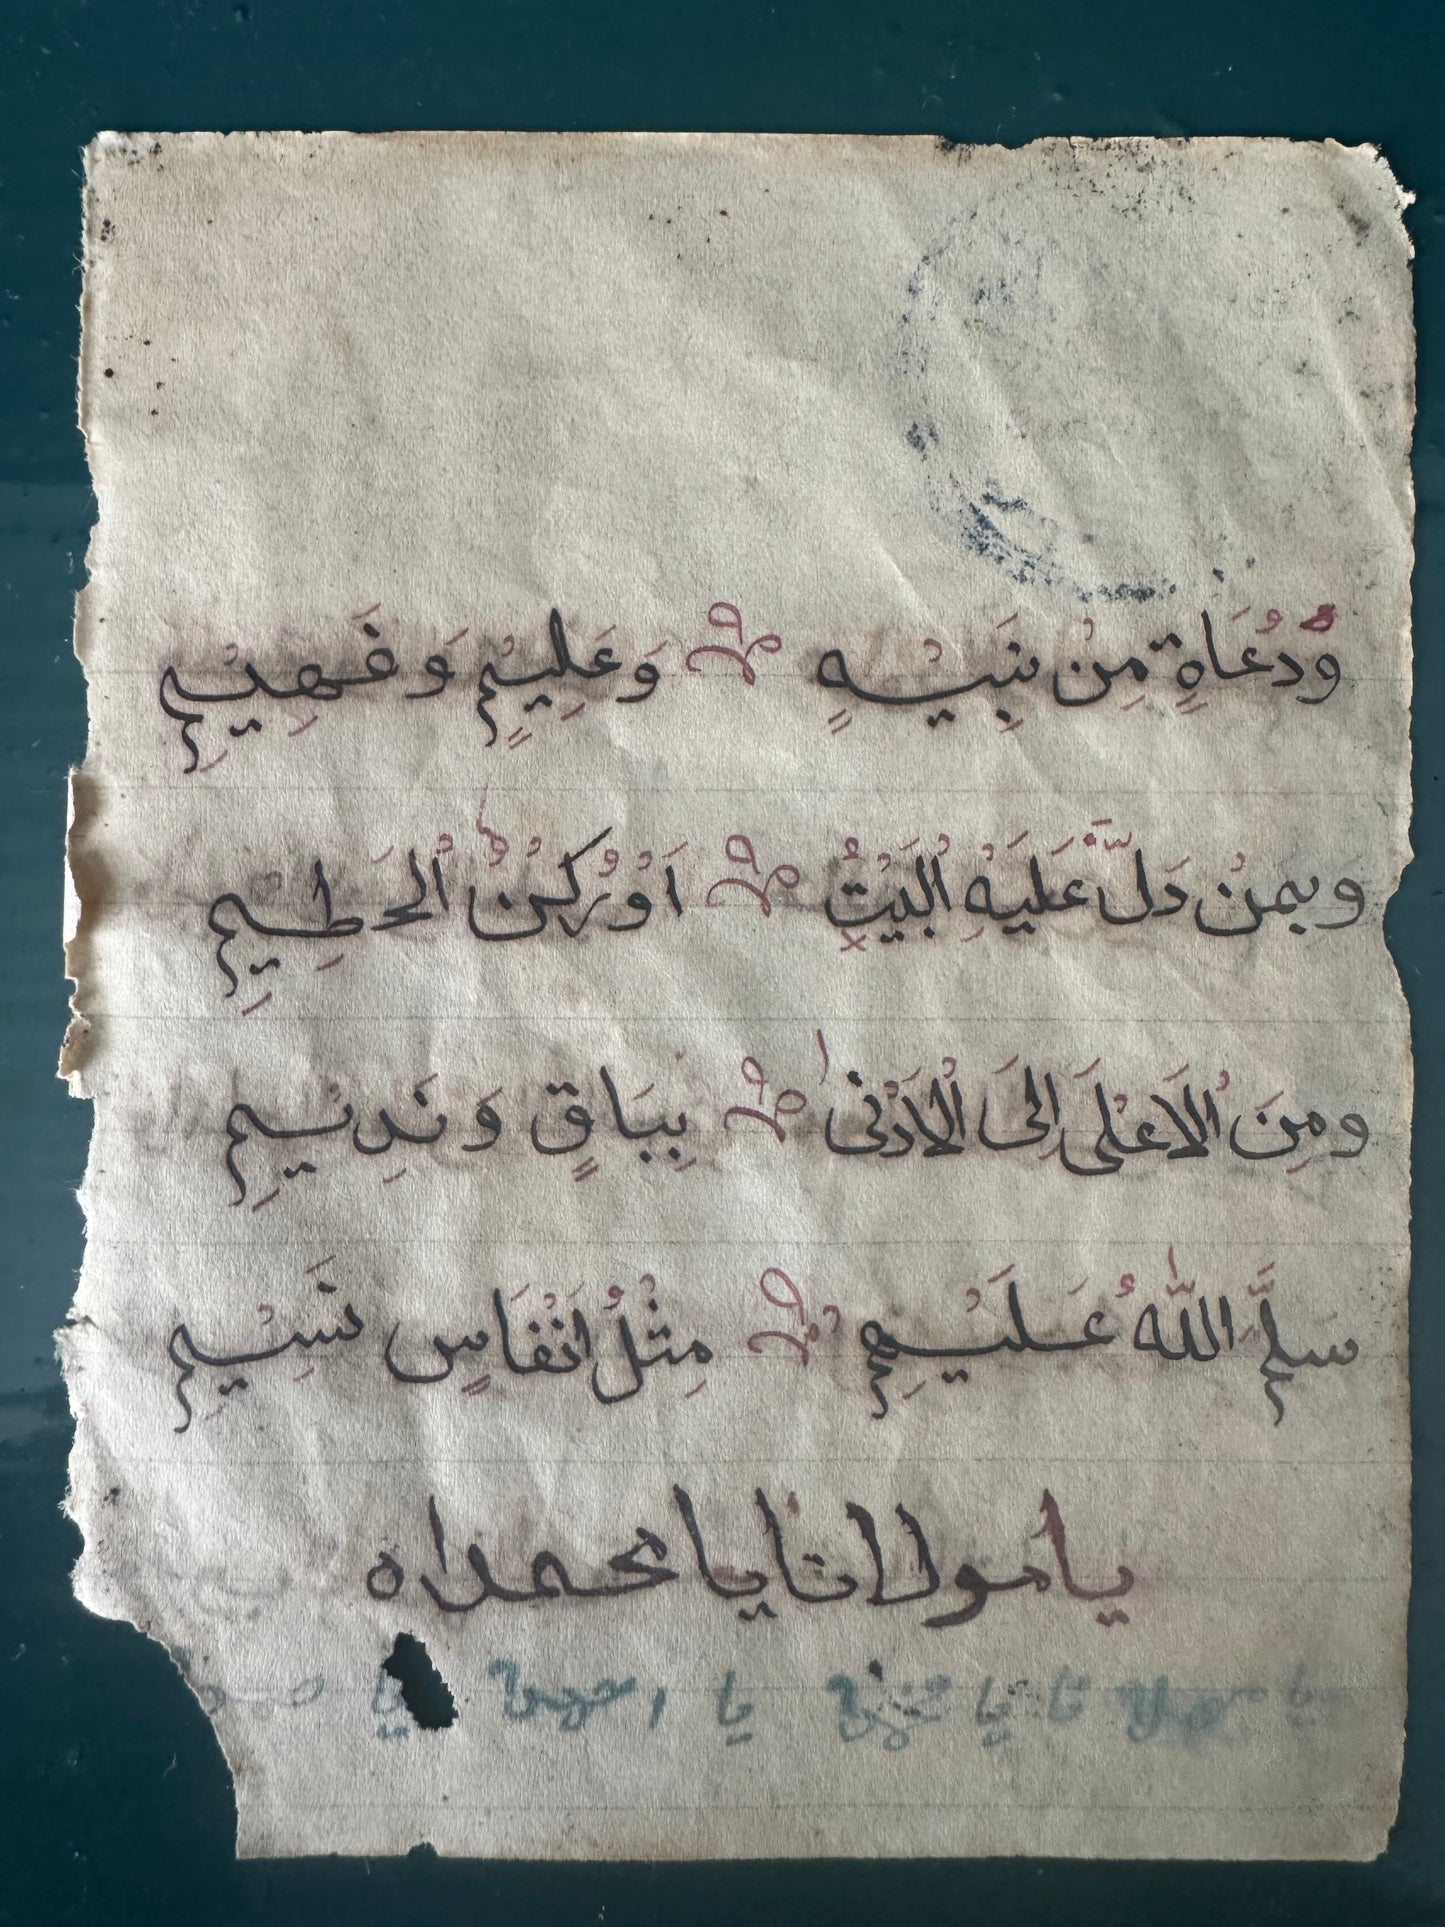 وَدُعَاةٍ مِنْ نَبِيْهٍ وَعَلِيْمٍ وَفَهِيْمِ
وبمنْ دَلَّ عَلَيْهِ الْبَيْتُ اَوْ رُكْنُ الْحَطِيْمِ
ومِنَ الْاَعْلَى اِلَى الْاَدْنٰى بِبَاقٍ وَنَدِيْمِ
سَلَّمَ اللّٰهُ عَلَيْهِمْ مِثْلُ اَنْفَاسٍ نَسِيْمِ
يا مولانا يا محمداه
يا مولانا يا